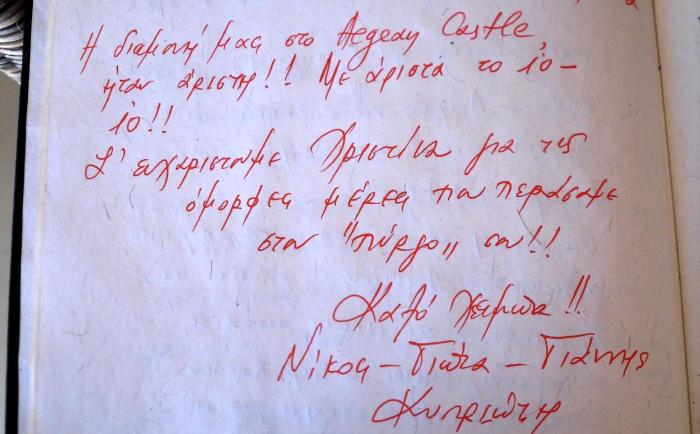 Η διαμονή μας στο Aegean Castle,
ήταν άριστη!! Με άριστα το 10-
10!!
Σ' ευχαριστούμε Χριστίνα για τις
όμορφες μέρες που περάσαμε
στον "πύργο" σου!!
Καλό χειμώνα!!
Νίκος - Γιώτα - Γιάννης